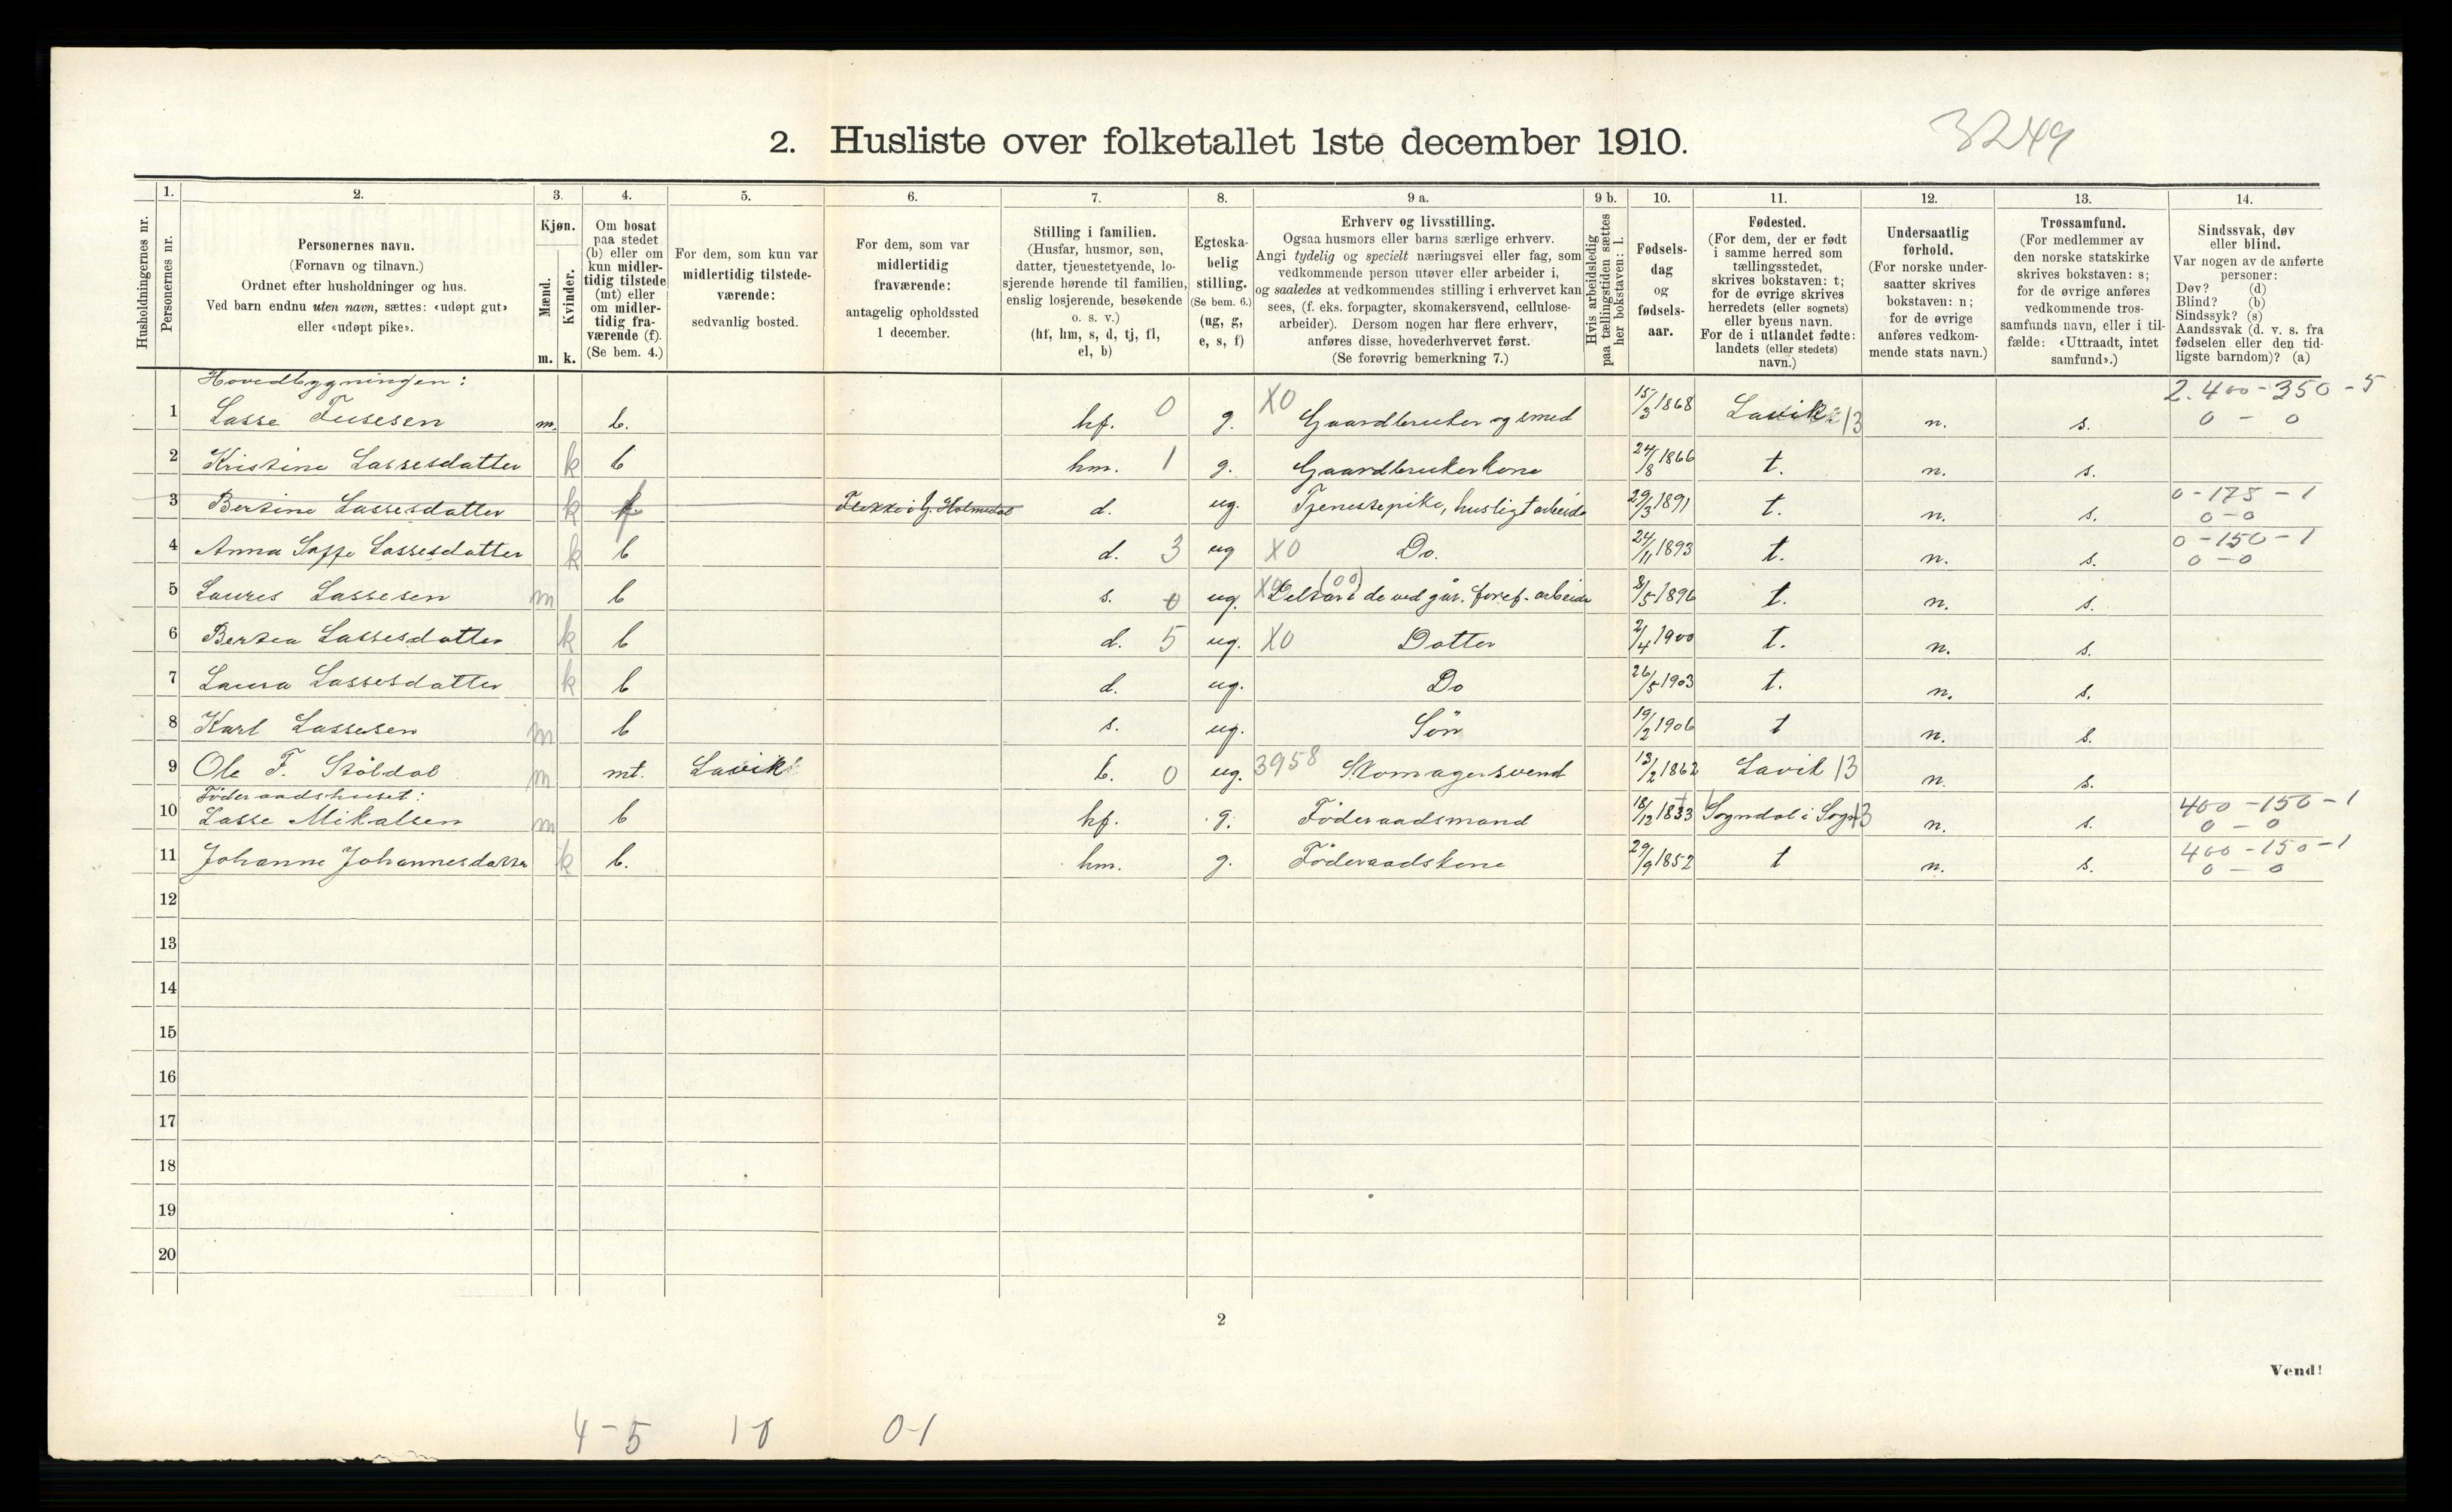 2. Husliste over folketallet 1ste december 1910.
3249
Husholdningernes nr.
1. Personernes nr.
2. Personernes navn. (Fornavn og tilnavn.) Ordnet efter husholdninger og hus. Ved barn endnu uten navn, sættes: «udøpt gut» eller «udøpt pike».
3. Kjøn. Mænd. m. Kvinder. k.
4. Om bosat paa stedet (b) eller om kun midlertidig tilstede (mt) eller om midlertidig fraværende (f). (Se bem. 4.)
5. For dem, som kun var midlertidig tilstedeværende: sedvanlig bosted.
6. For dem, som var midlertidig fraværende: antagelig opholdssted 1 december.
7. Stilling i familien. (Husfar, husmor, søn, datter, tjenestetyende, losjerende hørende til familien, enslig losjerende, besøkende o. s. v.) (hf, hm, s, d, tj, fl, el, b)
8. Egteskabelig stilling. (Se bem. 6.) (ug, g, e, s, f)
9 a. Erhverv og livsstilling. Ogsaa husmors eller barns særlige erhverv. Angi tydelig og specielt næringsvei eller fag, som vedkommende person utøver eller arbeider i, og saaledes at vedkommendes stilling i erhvervet kan sees, (f. eks. forpagter, skomakersvend, cellulosearbeider). Dersom nogen har flere erhverv, anføres disse, hovederhvervet først. (Se forøvrig bemerkning 7.)
9 b. Hvis arbeidsledig paa tællingstiden sættes her bokstaven: l.
10. Fødselsdag og fødselsaar.
11. Fødested. (For dem, der er født i samme herred som tællingsstedet, skrives bokstaven: t; for de øvrige skrives herredets (eller sognets) eller byens navn. For de i utlandet fødte: landets (eller stedets) navn.)
12. Undersaatlig forhold. (For norske undersaatter skrives bokstaven: n; for de øvrige anføres vedkommende stats navn.)
13. Trossamfund. (For medlemmer av den norske statskirke skrives bokstaven: s; for de øvrige anføres vedkommende trossamfunds navn, eller i tilfælde: «Uttraadt, intet samfund».)
14. Sindssvak, døv eller blind. Var nogen av de anførte personer: Døv? (d) Blind? (b) Sindssyk? (s) Aandssvak (d. v. s. fra fødselen eller den tidligste barndom)? (a)
Hovedbygningen:
1 Lasse Tusesen m. b. hf. 0 g. X0 Gaardbruker og smed 15/3 1868 Lavik 13 n. s. 2.400-350-5 0 - 0
2 Kristine Lassesdatter k b hm. 1 g. Gaardbrukerkone 24/8 1866 t. n. s.
3 Bertine Lassesdatter k f Flekke i Y. Holmedal d. ug. Tjenestepike, husligt arbeide 29/3 1891 t. n. s. 0-175-1 0-0
4 Anna Lassesdatter k b d. 3 ug X0 Do. 24/11 1893 t. n. s. 0-150-1 0-0
5 Laures Lassesen m b s. 0 ug. X0 (00) ved arbeide 8/5 1896 t. n. s.
6 Bertea Lassesdatter k b d. 5 ug. X0 Datter 2/4 1900 t. n. s.
7 Laura Lassesdatter k b d. ug. Do 26/5 1903 t. n. s.
8 Karl Lassesen m b s. ug. Søn 19/2 1906 t n. s.
9 Ole F. Stöldal m mt. Lavik b. 0 ug. 3958 Skomagersvend 13/2 1862 Lavik 13 n. s.
Föderaadshuset:
10 Lasse Mikalsen m b hf. g. Föderaadsmand 18/12 1833 Sogndal i Sogn 13 n. s. 400-150-1 0-0
11 Johanne Johannesdatter k b. hm. g. Föderaadskone 29/9 1852 t n. s. 400-150-1 0-0
12
13
14
15
16
17
18
19
20
2
Vend!
4-5 1-0 0-1